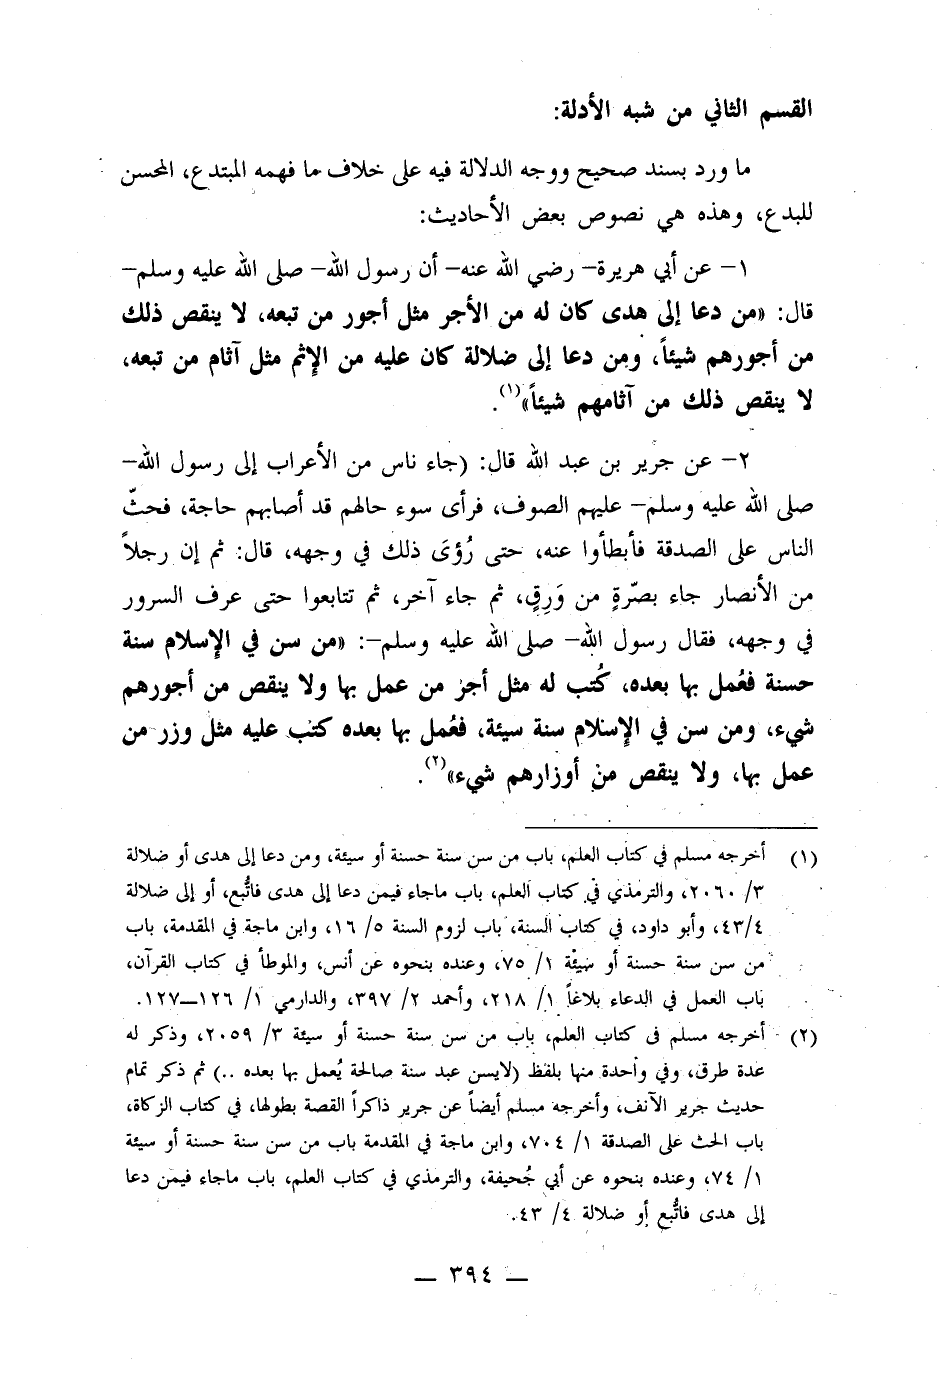 القسم الثاني من شبه الأدلة:
ما ورد بسند صحيح ووجه الدلالة فيه على خلاف ما فهمه المبتدع، المحسن
للبدع، وهذه هي نصوص بعض الأحاديث:
١– عن أبي هريرة– رضي الله عنه– أن رسول الله– صلى الله عليه وسلم–
قال: «من دعا إلى هدى كان له من الأجر مثل أجور من تبعه، لا ينقص ذلك
من أجورهم شيئاً، ومن دعا إلى ضلالة كان عليه من الإثم مثل آثام من تبعه،
لا ينقص ذلك من آثامهم شيئاً»(١).
٢– عن جرير بن عبد الله قال: (جاء ناس من الأعراب إلى رسول الله–
صلى الله عليه وسلم– عليهم الصوف، فرأى سوء حالهم قد أصابهم حاجة، فحثّ
الناس على الصدقة فأبطأوا عنه، حتى رُؤىَ ذلك في وجهه، قال: ثم إن رجلاً
من الأنصار جاء بصرّةٍ من وَرِقٍ، ثم جاء آخر، ثم تتابعوا حتى عرف السرور
في وجهه، فقال رسول الله– صلى الله عليه وسلم–: «من سن في الإسلام سنة
حسنة فعُمل بها بعده، كُتب له مثل أجر من عمل بها ولا ينقص من أجورهم
شيء، ومن سن في الإسلام سنة سيئة، فعُمل بها بعده كتب عليه مثل وزر من
عمل بها، ولا ينقص من أوزارهم شيء»(٢).
(١) أخرجه مسلم في كتاب العلم، باب من سن سنة حسنة أو سيئة، ومن دعا إلى هدى أو ضلالة
٣/ ٢٠٦٠، والترمذي في كتاب العلم، باب ماجاء فيمن دعا إلى هدى فاتُّبع، أو إلى ضلالة
٤٣/٤، وأبو داود، في كتاب السنة، باب لزوم السنة ٥/ ١٦، وابن ماجة في المقدمة، باب
من سن سنة حسنة أو سيئة ١/ ٧٥، وعنده بنحوه عن أنس، والموطأ في كتاب القرآن،
باب العمل في الدعاء بلاغاً ١/ ٢١٨، وأحمد ٢/ ٣٩٧، والدارمي ١/ ١٢٦–١٢٧.
(٢) أخرجه مسلم فى كتاب العلم، باب من سن سنة حسنة أو سيئة ٣/ ٢٠٥٩، وذكر له
عدة طرق، وفي وأحدة منها بلفظ (لايسن عبد سنة صالحة يُعمل بها بعده ..) ثم ذكر تمام
حديث جرير الآنف، وأخرجه مسلم أيضاً عن جرير ذاكراً القصة بطولها، في كتاب الزكاة،
باب الحث على الصدقة ١/ ٧٠٤، وابن ماجة في المقدمة باب من سن سنة حسنة أو سيئة
١/ ٧٤، وعنده بنحوه عن أبي جُحيفة، والترمذي في كتاب العلم، باب ماجاء فيمن دعا
إلى هدى فاتُّبع أو ضلالة ٤/ ٤٣.
— ٣٩٤ —